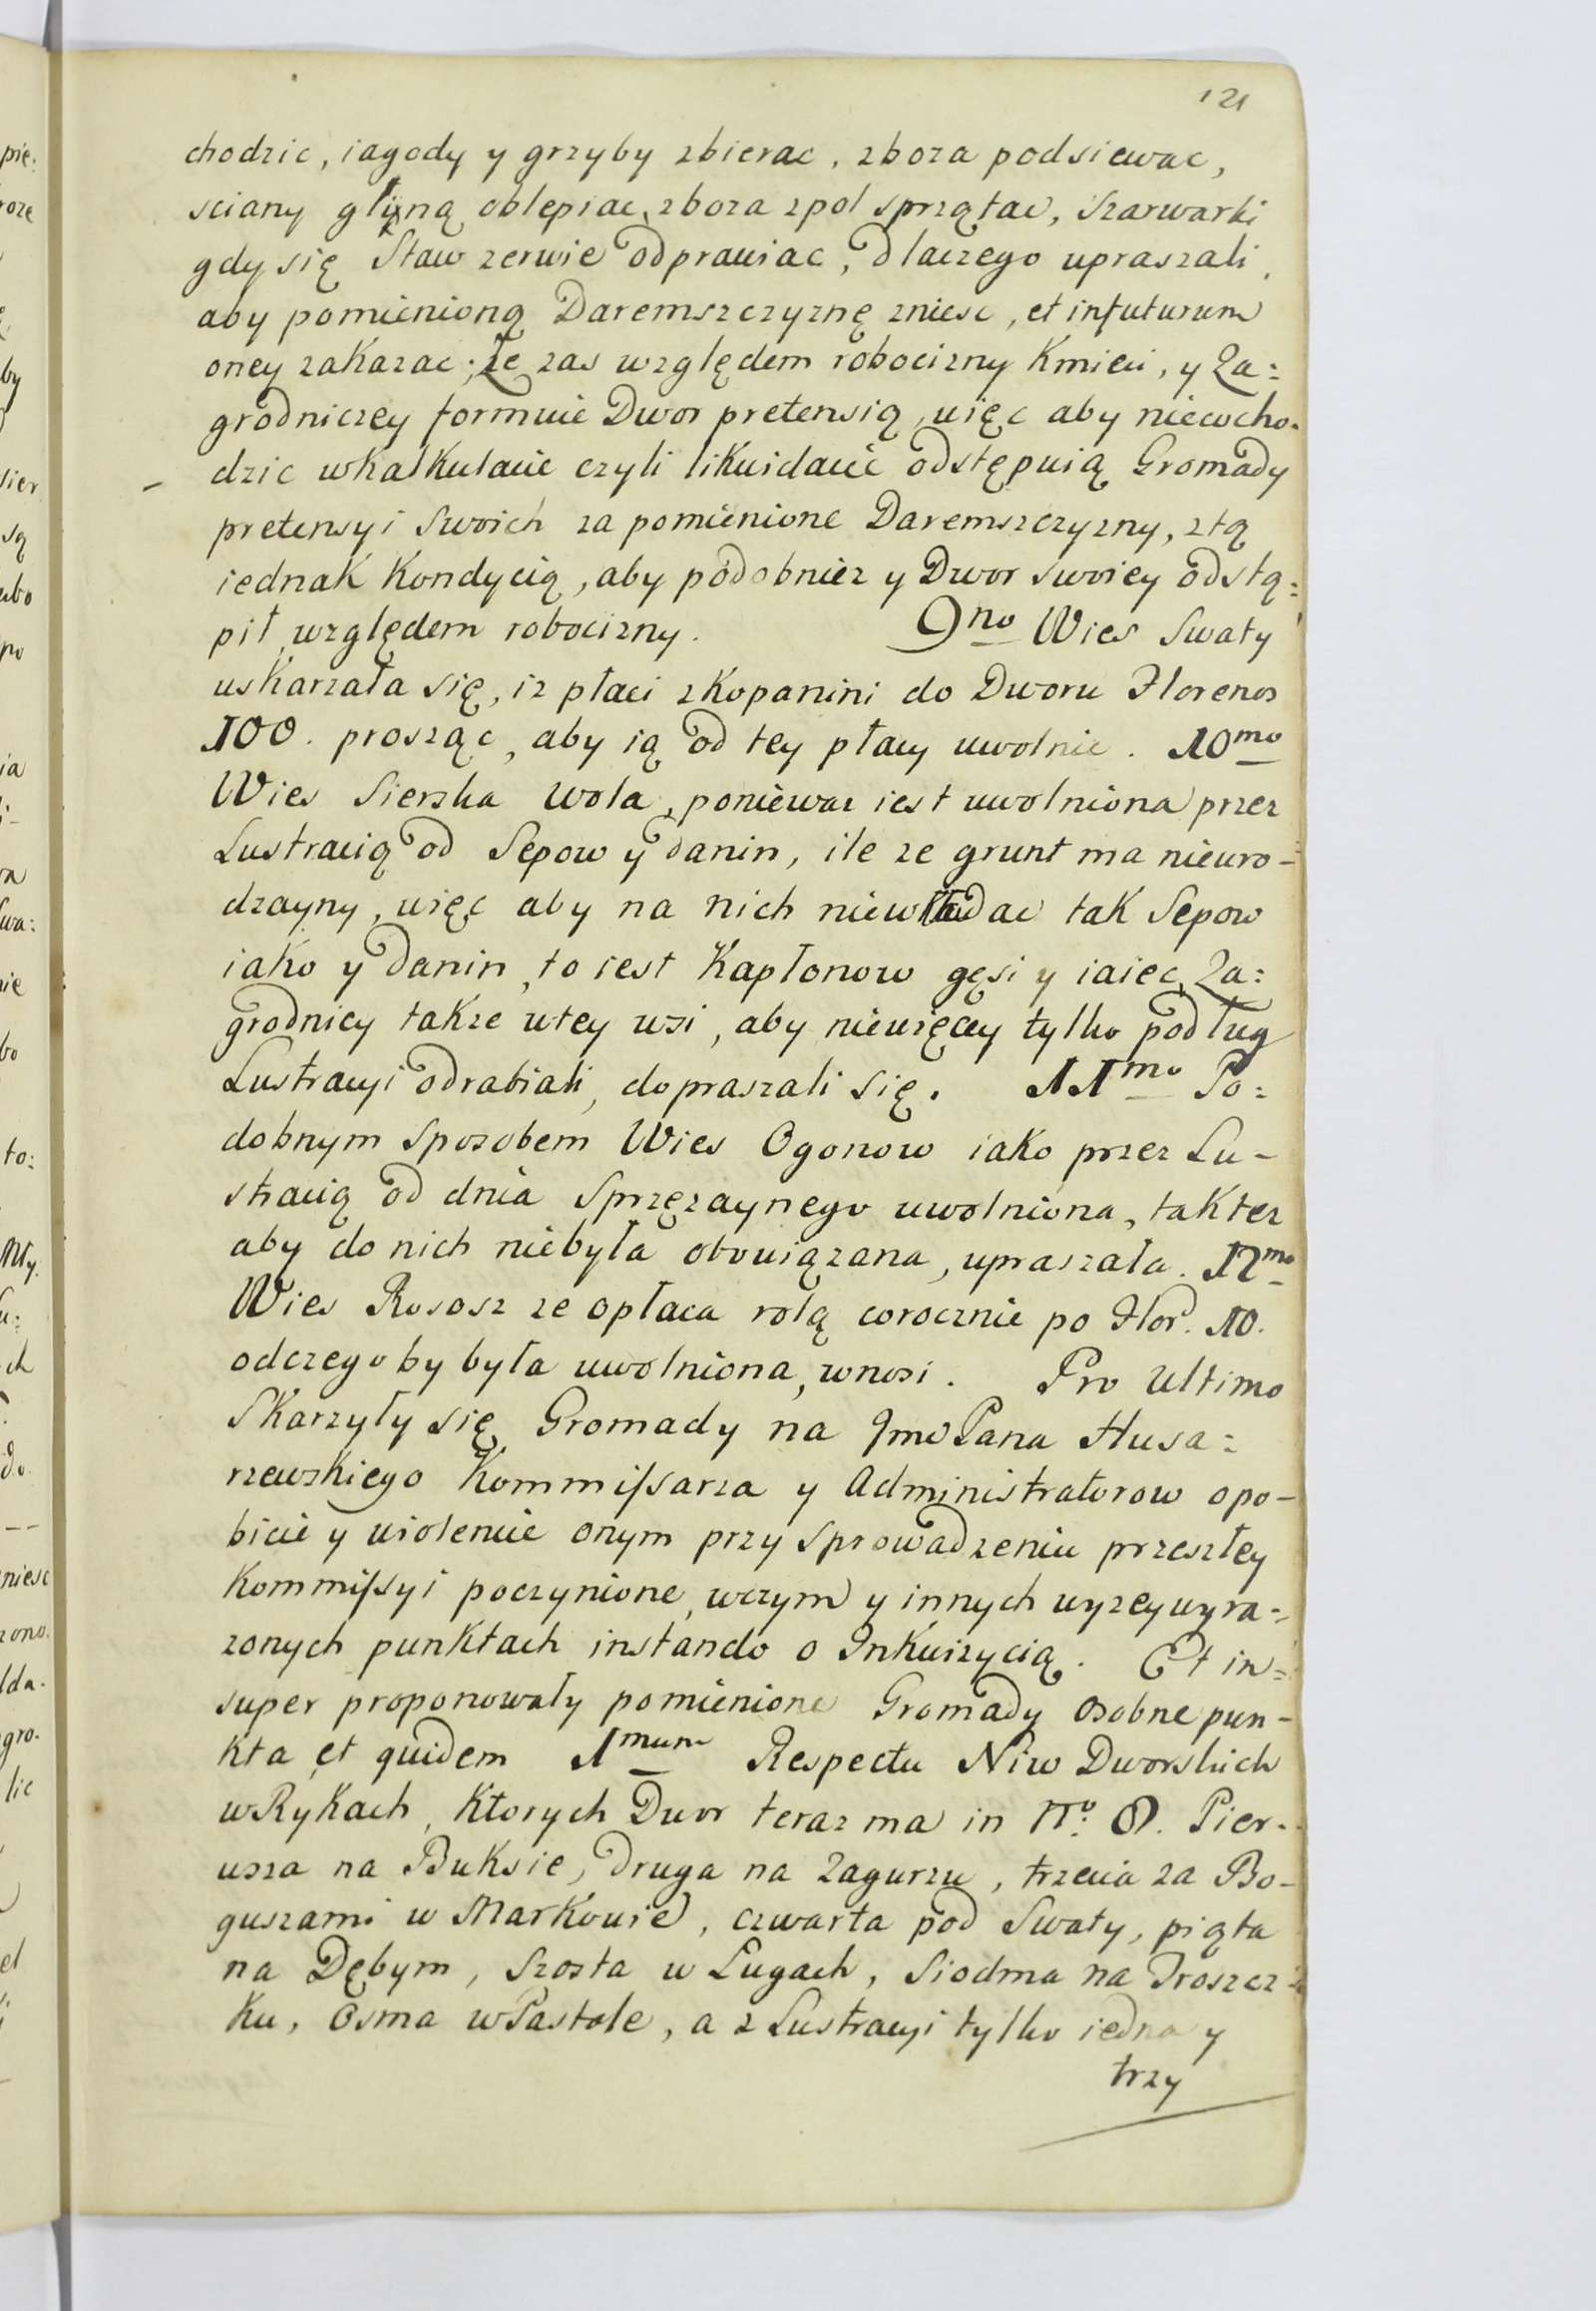 121
chodzic, iagody y grzyby zbierac, zboza podsiewac,
sciany gliną oblepiac, zboza zpol sprzątac, Szarwarki
gdy się Staw zerwie odprawiac, dlaczego upraszali,
aby pomienioną Daremszczyznę zniesc, et infuturum
oney zakazac; Ze zas względem robocizny Kmieci, y Za:
grodniczey formuie Dwor pretensią, więc aby niewcho-
dzic wKalkulacie czyli likwidacie odstępuią Gromady
pretensyi Swoich za pomienione Daremszczyzny, ztą
iednak Kondycią, aby podobniez y Dwor swoiey odstą:
pił względem robocizny. 9no Wies Swaty
uskarzała się, iz płaci zKopanini do Dworu Florenos
100. prosząc, aby ią od tey płacy uwolnic. 10mo
Wies Sierska Wola, poniewaz iest uwolniona przez
Lustracią od Sepow y danin, ile ze grunt ma nieuro-
dzayny, więc aby na nich niewkładac tak Sepow
iako y danin, to iest Kapłonow gęsi y iaiec, Za:
grodnicy takze wtey wsi, aby niewięcey tylko podług
Lustracyi odrabiali, dopraszali się. 11mo Po:
dobnym Sposobem Wies Ogonow iako przez Lu-
stracią od dnia Sprzęzaynego uwolniona, takter
aby do nich niebyła obowiązana, upraszała. 12mo
Wies Rososz ze opłaca rolą corocznie po Flor. 10.
odczego by była uwolniona, wnosi. Pro Ultimo
Skarzyły się Gromady na Jmo Pana Husa:
rzewskiego Kommissarza y Administratorow opo-
bicie y wiolencie onym przy Sprowadzeniu przeszłey
Kommissyi poczynione, wczym y innych wyzeywyra-
zonych punktach instando o Inkwizycią. Et in=
super proponowały pomienione Gromady osobne pun-
kta et quidem 1mum Respectu Niw Dworskich
wRykach, Ktorych Dwor teraz ma in No. 8. Pier-
wsza na Buksie, Druga na Zagurzu, trzecia za Bo-
guszami w Markowie, czwarta pod Swaty, piąta
na Dębym, Szosta w Ługach, Siodma na Troszcz-
ku, Osma wPastole, a z Lustracyi tylko iedna y
trzy